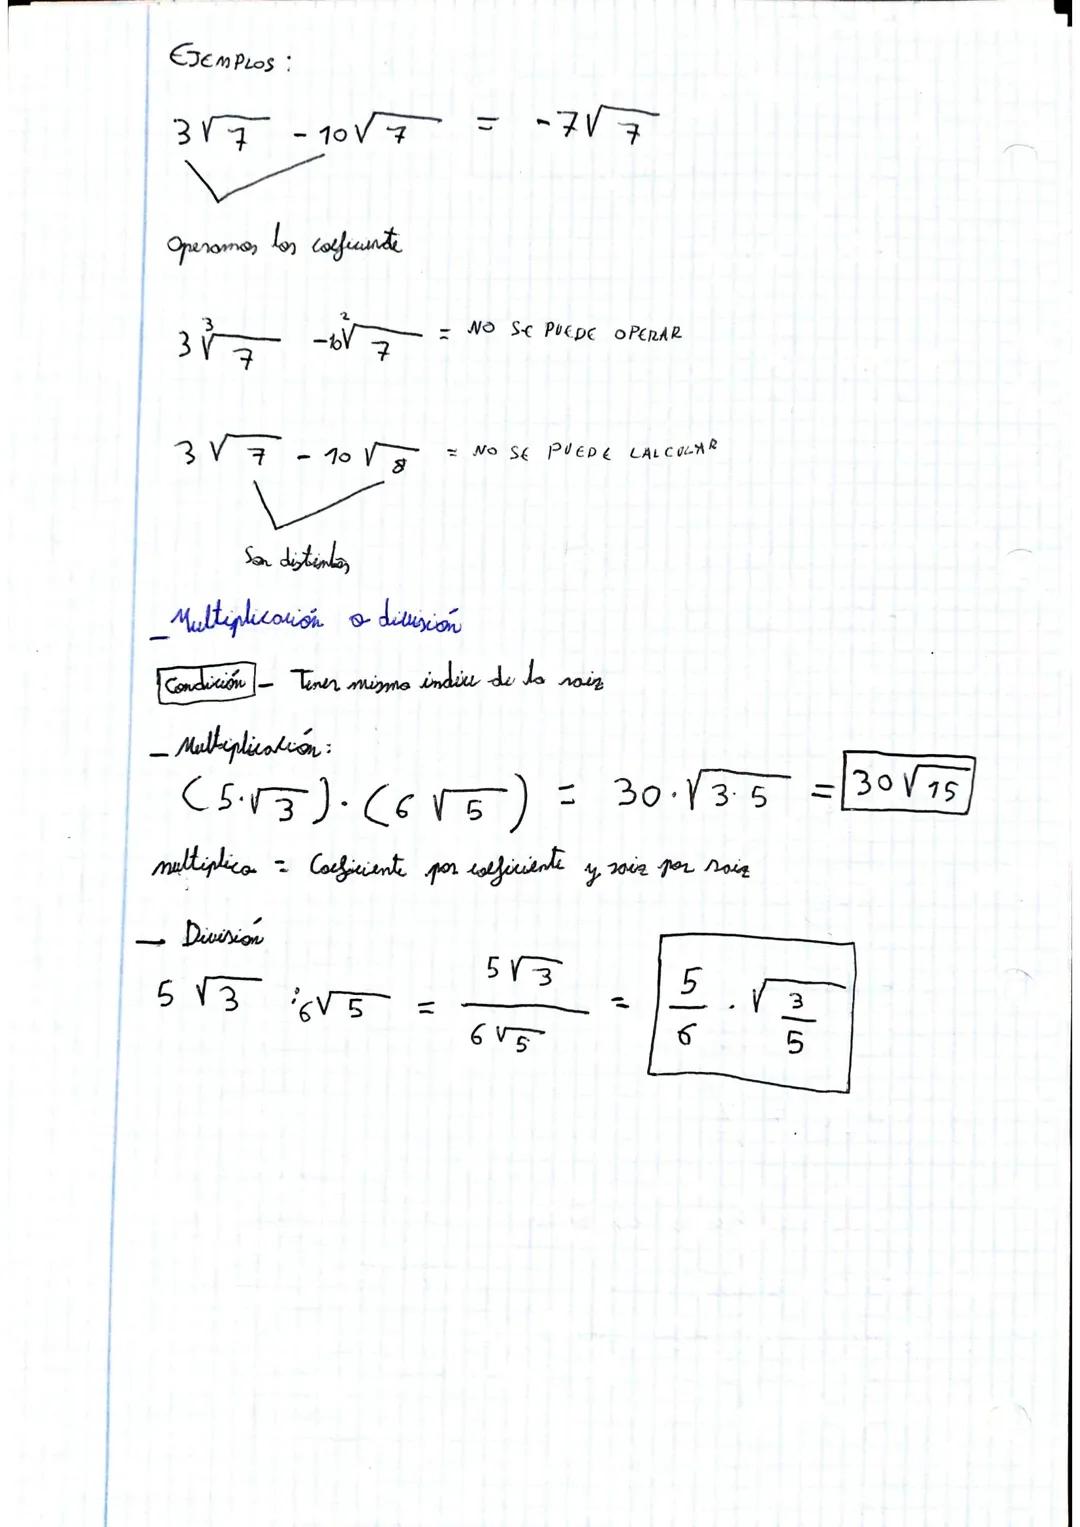 EJEMPLOS:
3√7 - 10√7 = -7√7
Operamos los coeficiente
3∛7 -10²√7 = NO SE PUEDE OPERAR
3√7 - 10√8 = NO SE PUEDE CALCULAR
Son distintos
_Multiplicación o división
Condición - Tener mismo indice de la raiz
- Multiplicación:
(5·√3)·(6√5) = 30·√3·5 = 30√15
multiplica = Coeficiente por coeficiente y raiz por raiz
- División
5√3 : 6√5 = 5√3/6√5 = 5/6 · √3/5